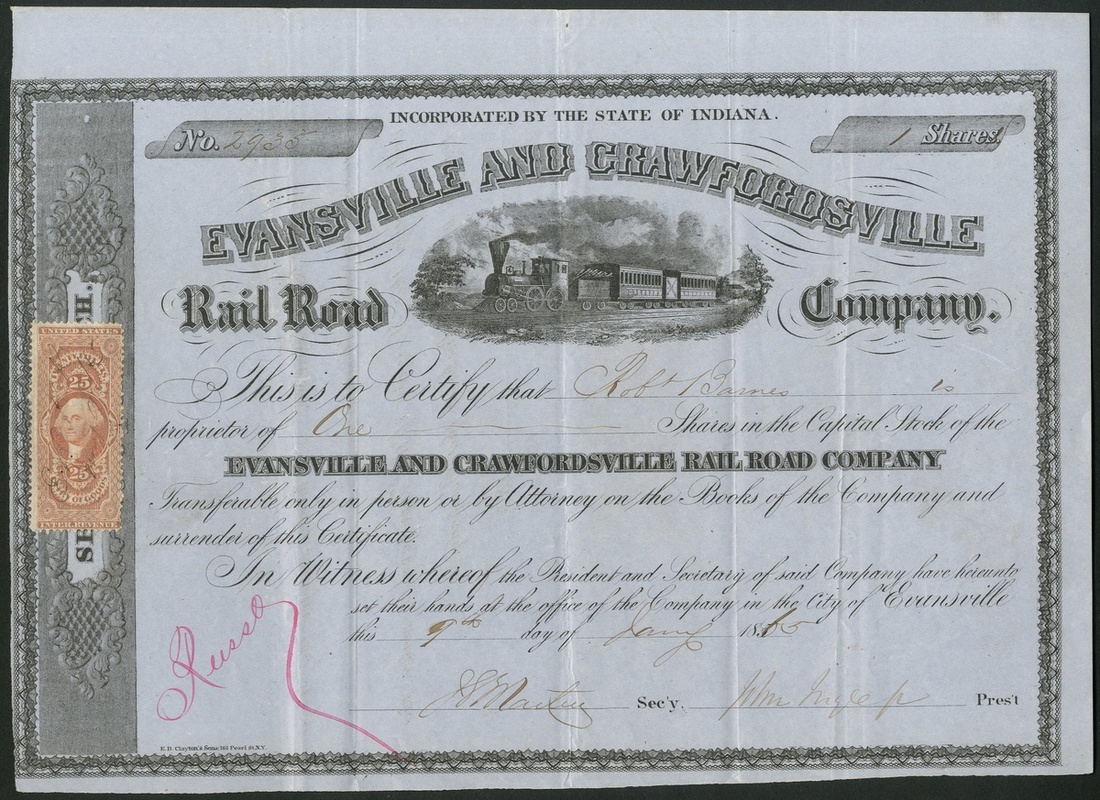 INCORPORATED BY THE STATE OF INDIANA.
No. 2935
1 Shares.
EVANSVILLE AND CRAWFORDSVILLE
Rail Road Company.
This is to Certify that Robt Barnes is
proprietor of One Shares in the Capital Stock of the
EVANSVILLE AND CRAWFORDSVILLE RAIL ROAD COMPANY
Transferable only in person or by Attorney on the Books of the Company and
surrender of this Certificate.
In Witness whereof the President and Secretary of said Company have hereunto
set their hands at the office of the Company in the City of Evansville
this 9th day of Jany 1865
J Martin Sec'y. John Ingle jr Pres't
E.B. Clayton's Sons, 161 Pearl St. N.Y.
UNITED STATES
25
25
INTER. REVENUE